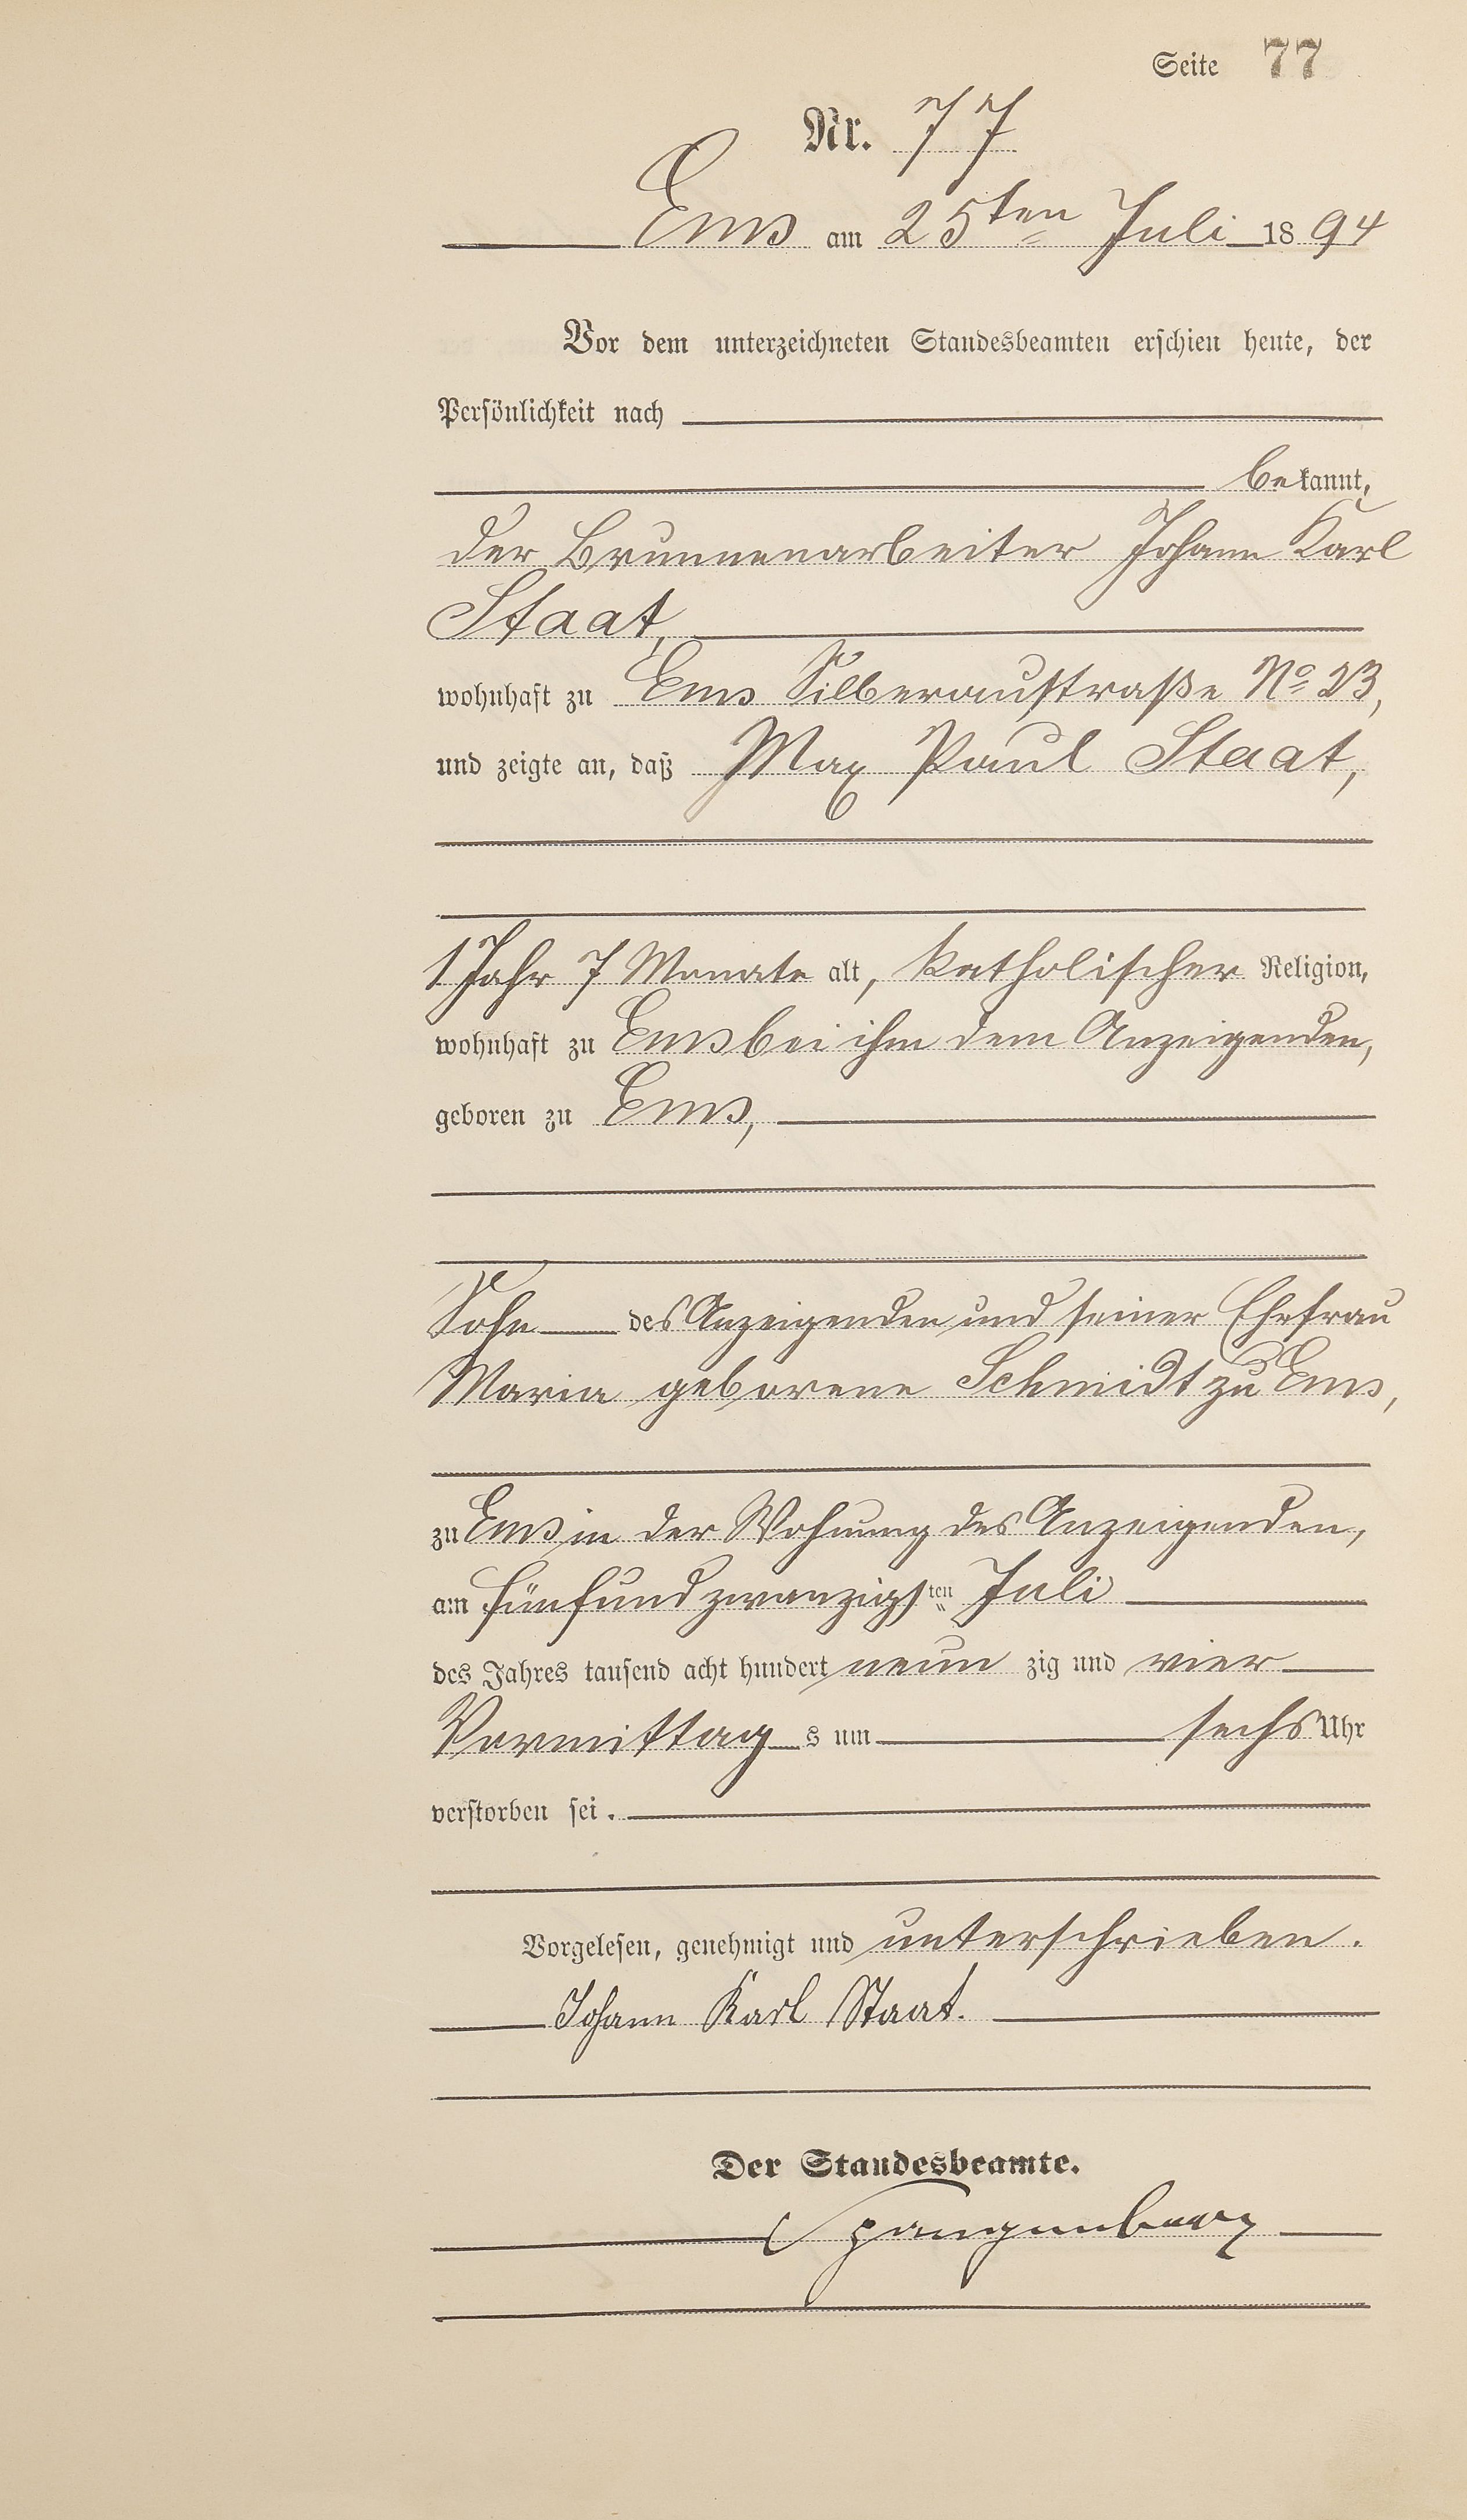 Seite 77
Nr. 77
Ems am 25ten Juli 1894
Vor dem unterzeichneten Standesbeamten erschien heute, der
Persönlichkeit nach
bekannt,
der Brunnenarbeiter Johann Karl
Staat,
wohnhaft zu Ems Silberaustraße No 23,
und zeigte an, daß Max Paul Staat,
1 Jahr 7 Monate alt, katholischer Religion,
wohnhaft zu Ems bei ihm dem Anzeigenden,
geboren zu Ems,
Sohn des Anzeigenden und seiner Ehefrau
Maria geborene Schmidt zu Ems,
zu Ems in der Wohnung des Anzeigenden,
am fünfundzwanzigsten Juli
des Jahres tausend acht hundert neun zig und vier
Vormittag s um sechs Uhr
verstorben sei.
Vorgelesen, genehmigt und unterschrieben.
Johann Karl Staat.
Der Standesbeamte.
Spangenberg